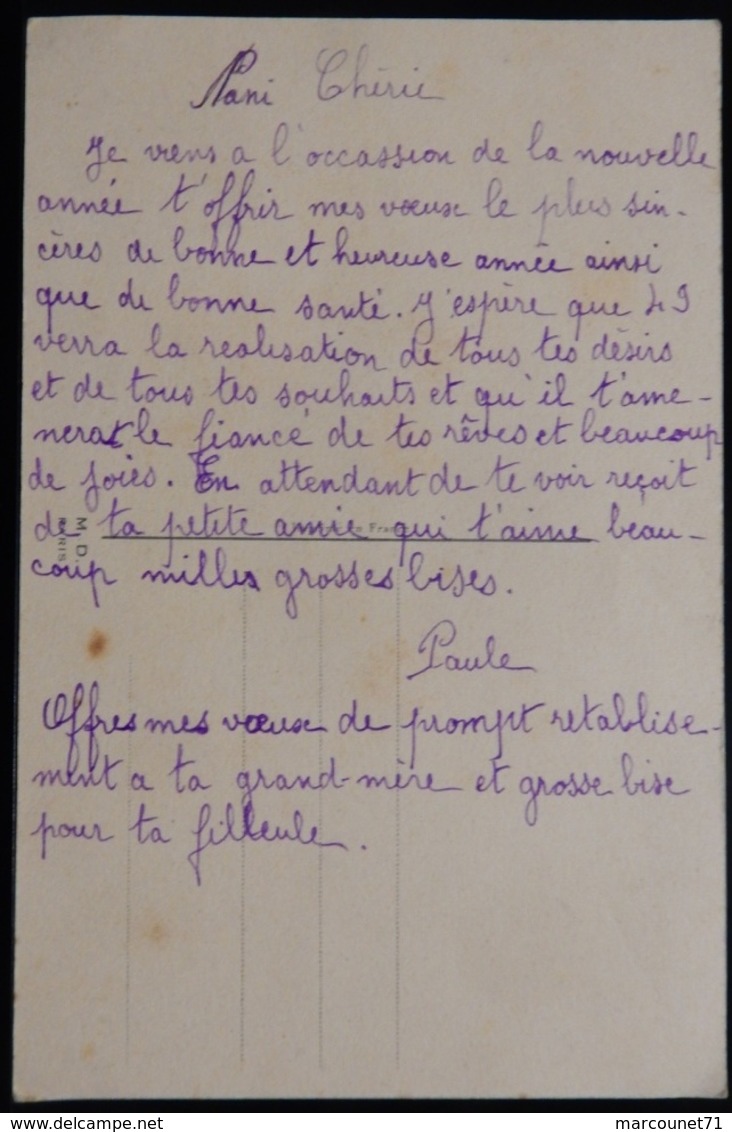 Nani Chérie
Je viens a l'occassion de la nouvelle
année t'offrir mes vœux le plus sin-
cères de bonne et heureuse année ainsi
que de bonne santé. J'espère que 49
verra la realisation de tous tes désirs
et de tous tes souhaits et qu'il t'ame-
nerat le fiancé de tes rêves et beaucoup
de joies. En attendant de te voir reçoit
de ta petite amie qui t'aime beau-
coup milles grosses bises.
Paule
Offres mes vœux de prompt retablise-
ment a ta grand-mère et grosse bise
pour ta filleule.
M. D.
PARIS
delcampe.net
marcounet71